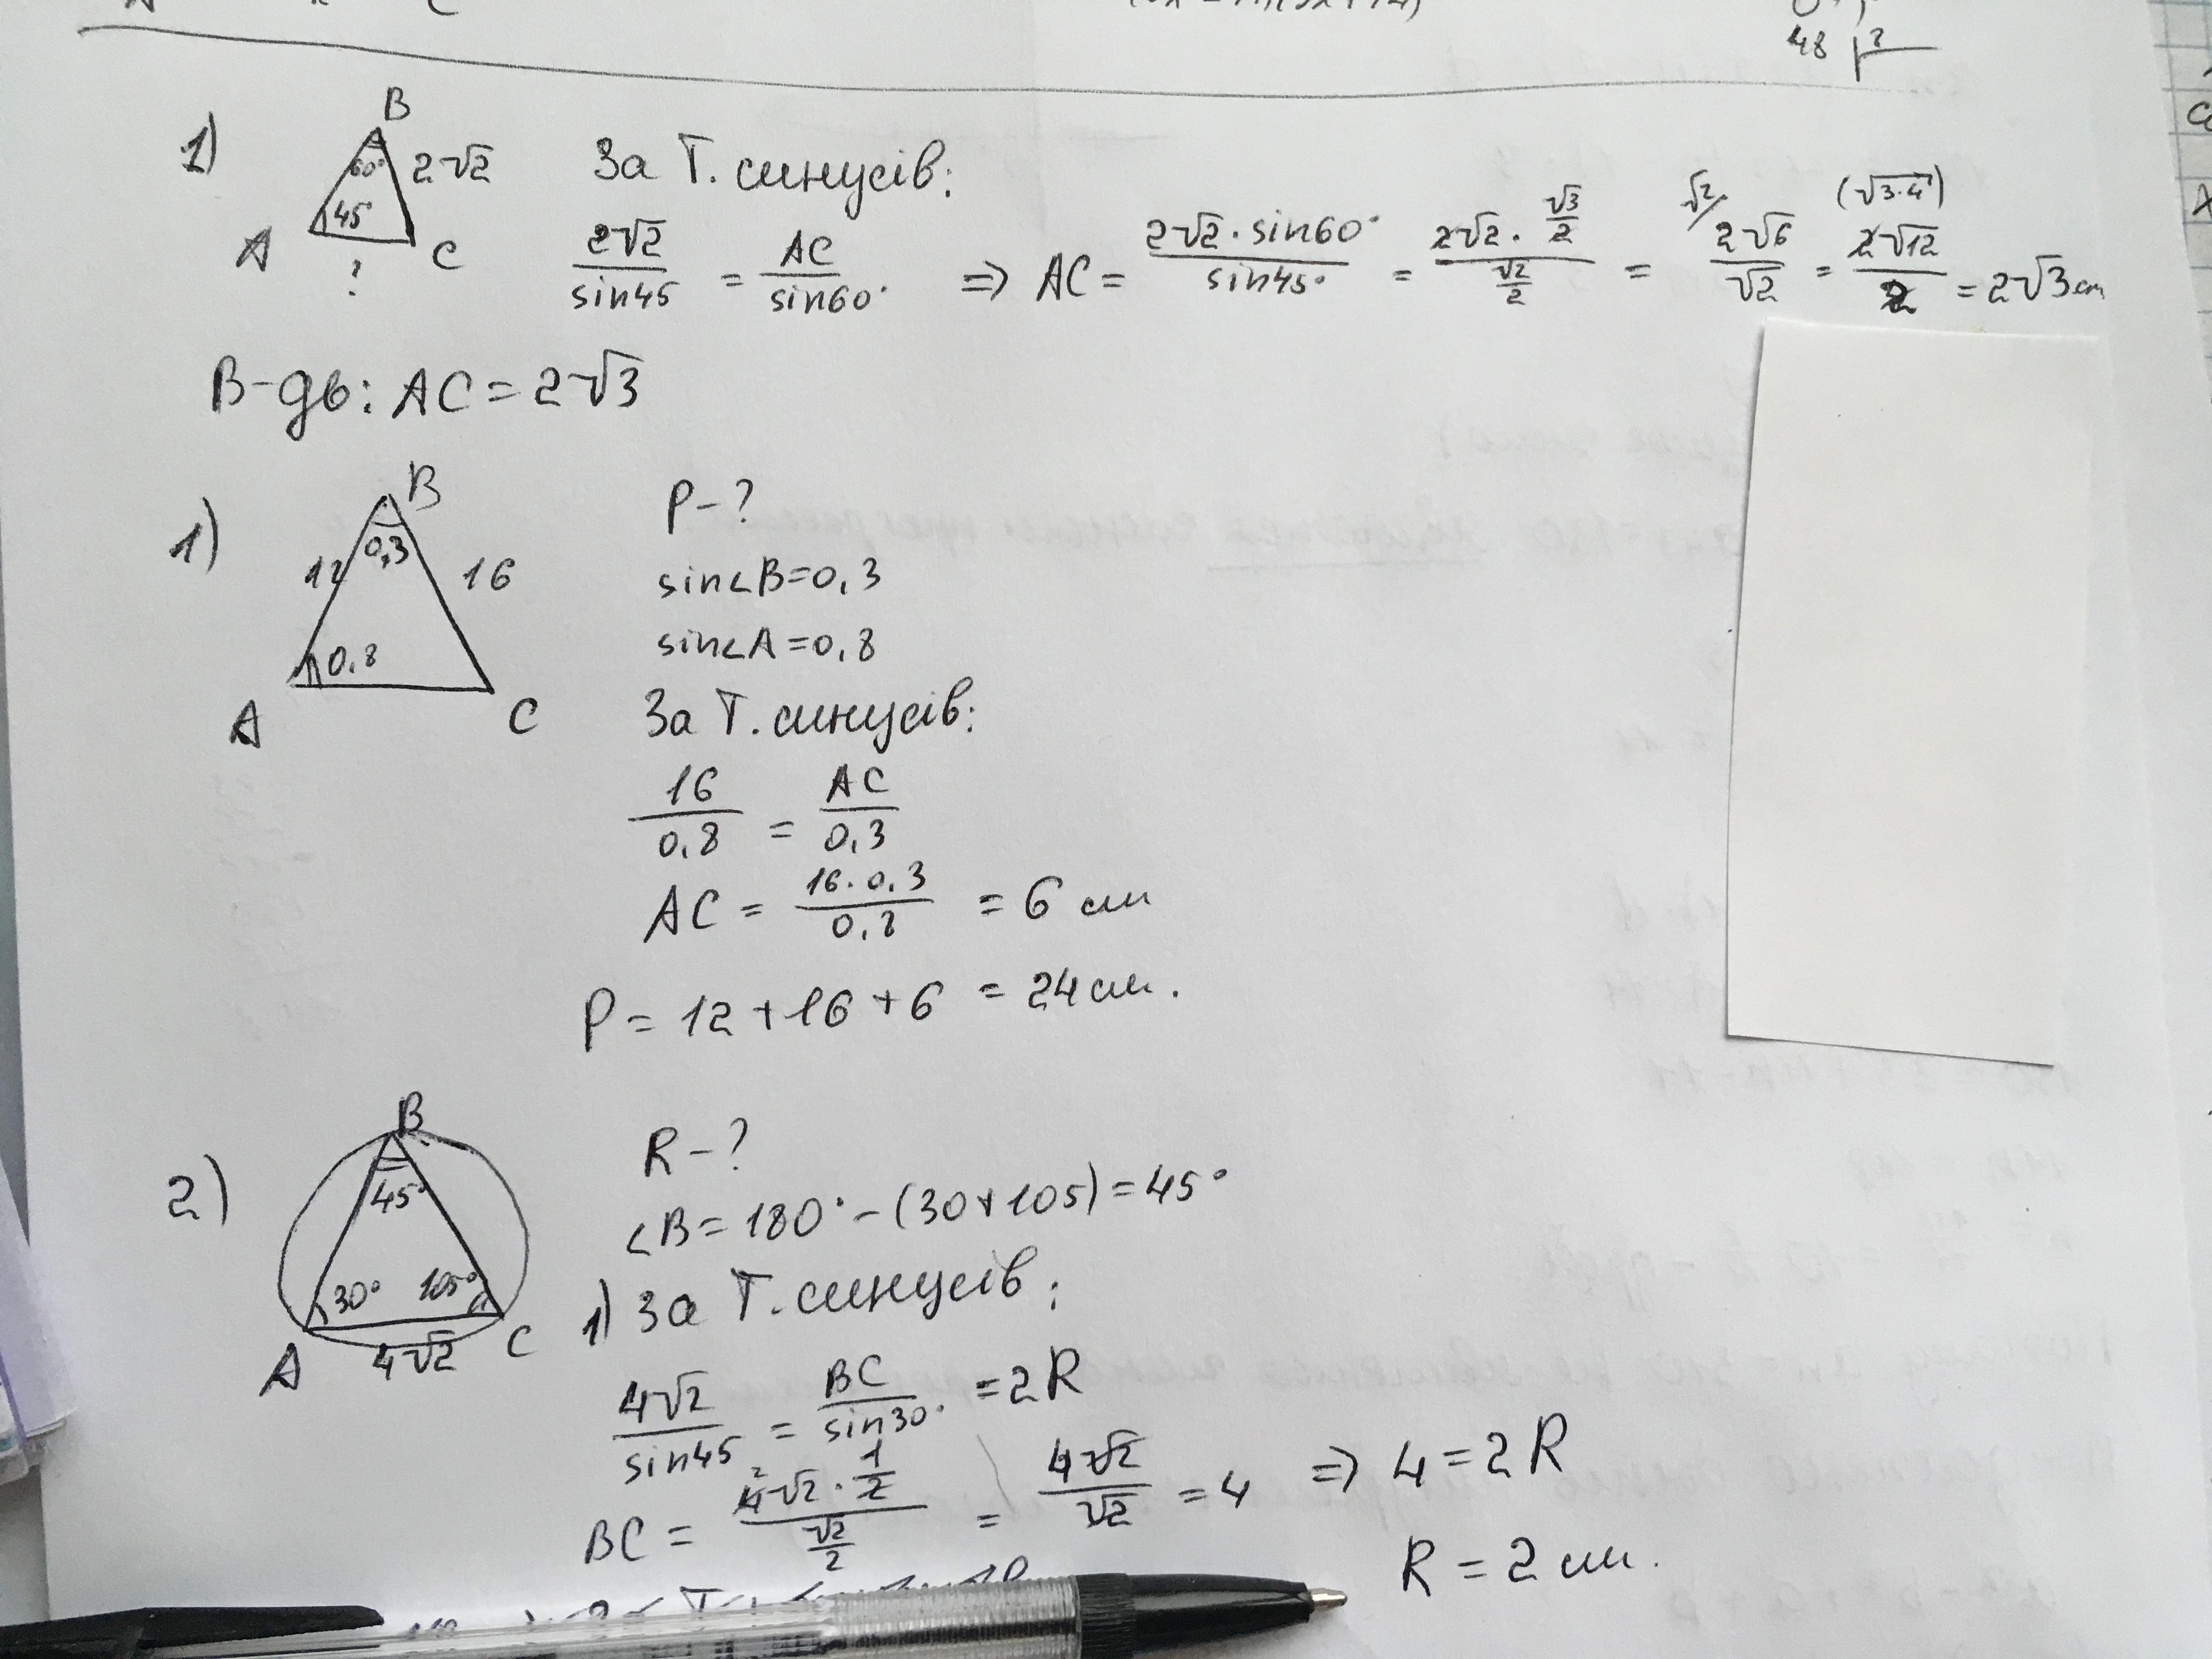 48
1)
B
60°
2√2
45
A
C
?
За Т. синусів:
2√2/sin45 = AC/sin60° => AC = 2√2 · sin60°/sin45° = (2√2 · √3/2)/(√2/2) = √2/ 2√6/√2 = (√3·4) 2√12/2 = 2√3 cm
В-дь: AC = 2√3
1)
B
0,3
12
16
0,8
A
C
P - ?
sin∠B=0,3
sin∠A=0,8
За Т. синусів:
16/0,8 = AC/0,3
AC = 16·0,3/0,8 = 6 см
P = 12 + 16 + 6 = 24 см.
2)
B
45°
30°
105°
A
4√2
C
R - ?
∠B = 180° - (30+105) = 45°
1) За Т. синусів:
4√2/sin45 = BC/sin30° = 2R
BC = (4√2 · 1/2)/(√2/2) 2 = 4√2/√2 = 4 => 4 = 2R
R = 2 см.